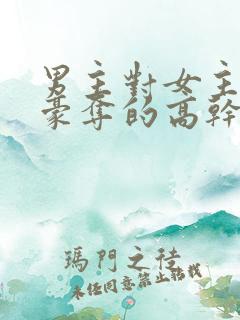 男主對女主
豪奪的高幹
瑪門之徒
未經同意禁止轉載